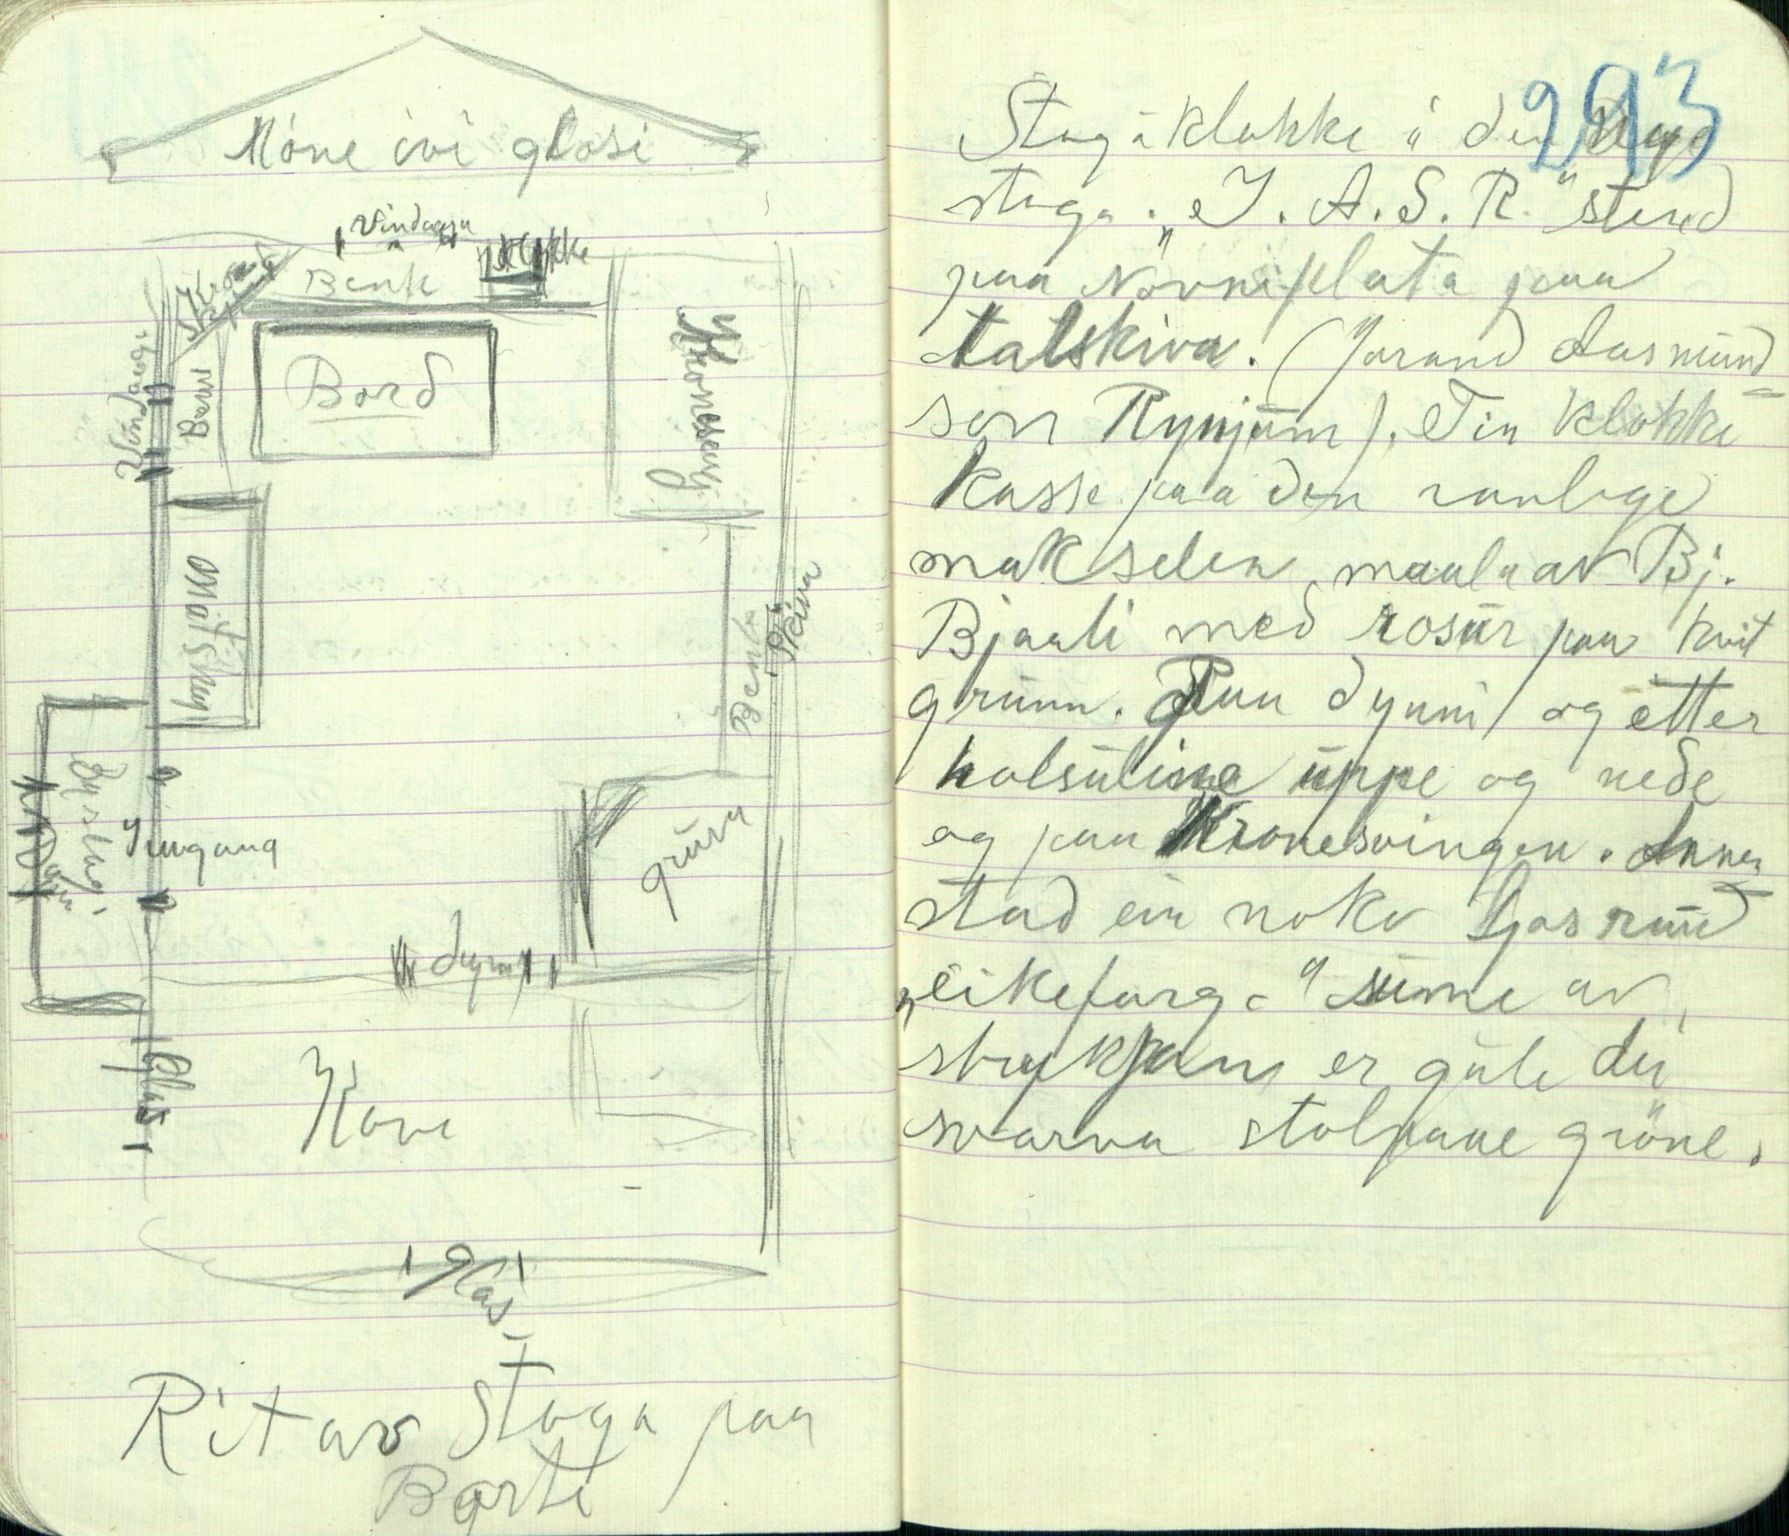 Móne ivi glasi
Vindauga
Klokke
Benk
Skaap
Vindaug.
Benk
Bord
Kroneseng
Matskap
Benk
Skiva
Byslag
Dyrin
Inngang
grúva
dyrn
Glas
Kove
Glas
Rit av Stoga paa
Børte
293
Stogâklokke i den Nye
stoga. „I. A. S. R" stend
paa Növneplata paa
talskiva. (Jorand Aasmúnd
son Rynjúm). Fin klokke
kasse paa den vanlege
mákselen maala av Bj.
Bjaali med rosúr paa kvit
grúnn. Paa dynni og etter
halsúlinne úppe og nede
og paa Kronesvingen. Annan
stad ein noko ljosraúd
„eikefarge" súme av
strykjam er gúle dei
svarva stolpane gröne.